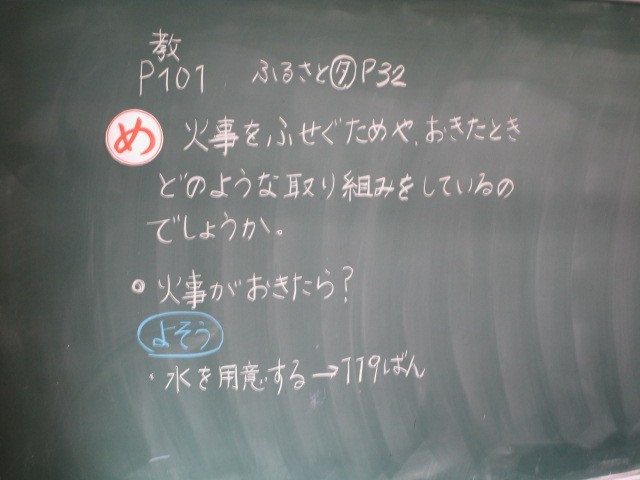 教
P101 ふるさと夕P32
め 火事をふせぐためや、おきたとき
どのような取り組みをしているの
でしょうか。
・火事がおきたら?
よそう
・水を用意する→119ばん